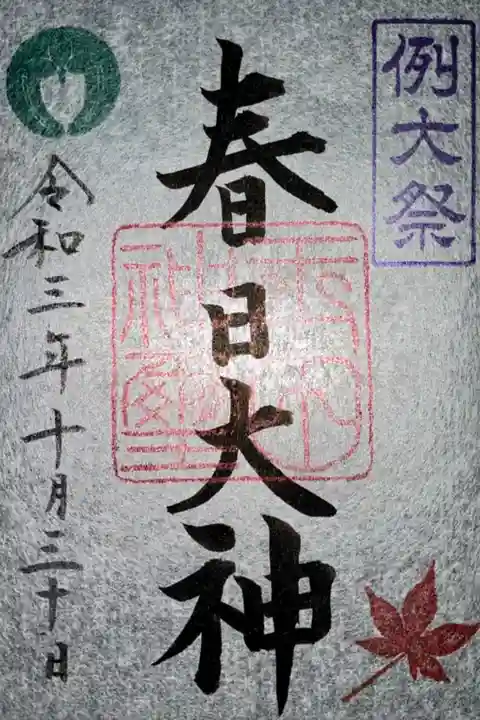 例大祭
春日大神
令和三年十月三十日